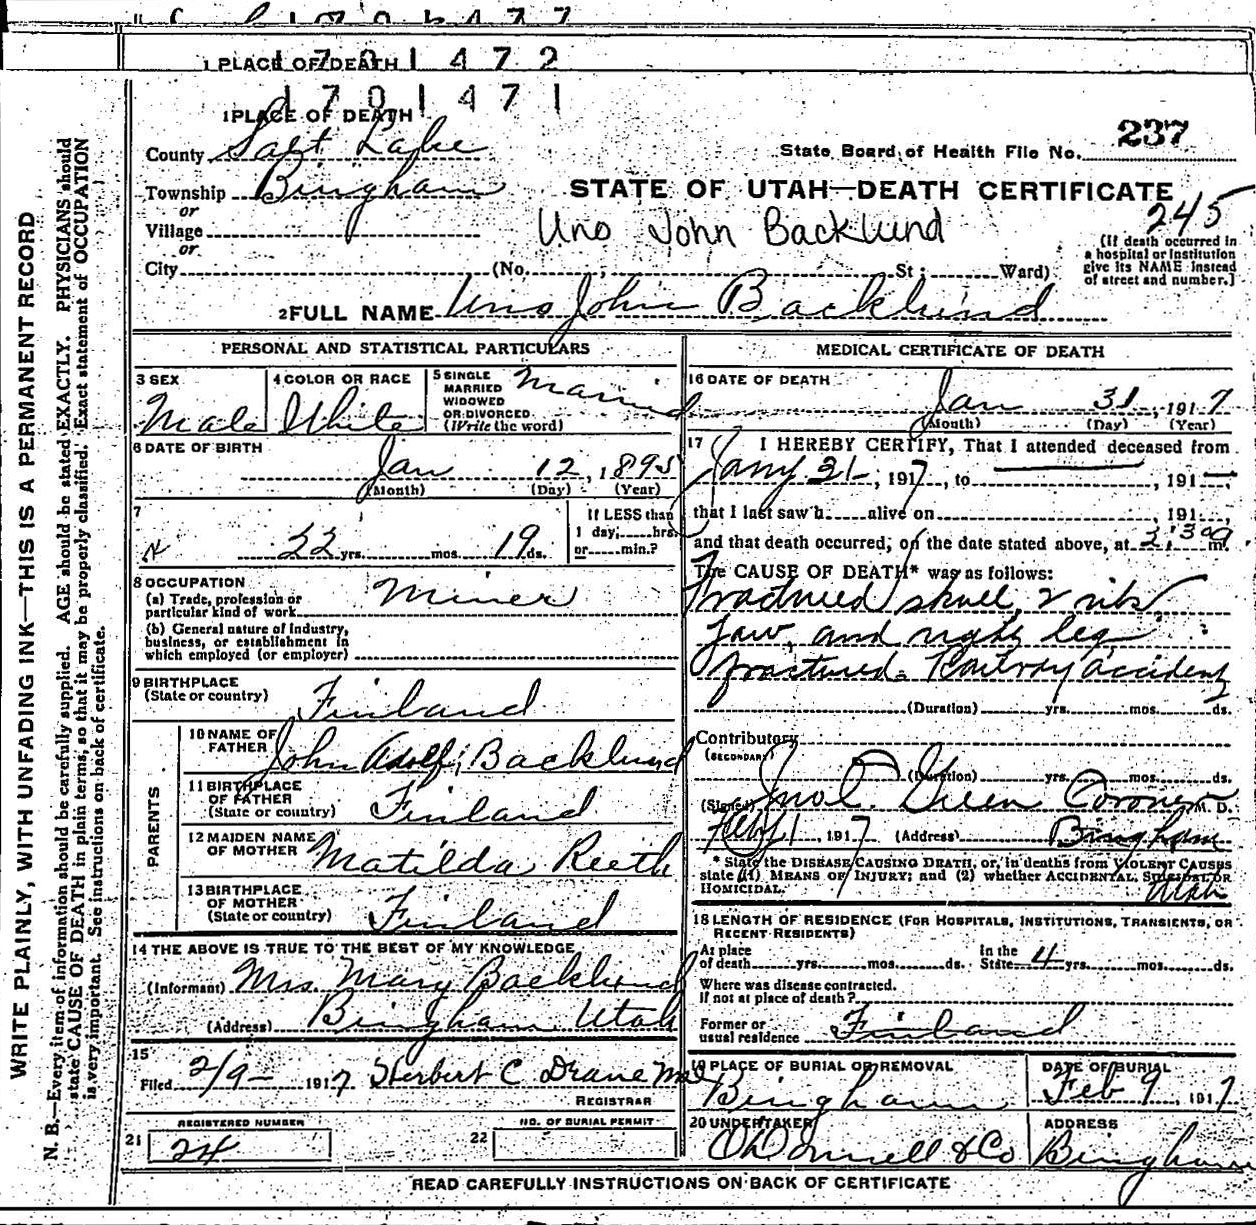 1 PLACE OF DEATH 1 7 0 1 4 7 2
1 7 0 1 4 7 1
1 PLACE OF DEATH
County Salt Lake
Township Bingham
or
Village
or
City (No. St; Ward)
State Board of Health File No. 237
STATE OF UTAH—DEATH CERTIFICATE
245
Uno John Backlund
(If death occurred in
a hospital or institution
give its NAME instead
of street and number.)
2 FULL NAME Uno John Backlund
PERSONAL AND STATISTICAL PARTICULARS
3 SEX
Male
4 COLOR OR RACE
White
5 SINGLE
MARRIED
WIDOWED
OR DIVORCED
(Write the word)
Married
6 DATE OF BIRTH
Jan 12, 1895
(Month) (Day) (Year)
7
22 yrs. mos. 19 ds.
If LESS than
1 day, hrs.
or min.?
8 OCCUPATION
(a) Trade, profession or
particular kind of work
Miner
(b) General nature of industry,
business, or establishment in
which employed (or employer)
9 BIRTHPLACE
(State or country)
Finland
PARENTS
10 NAME OF
FATHER
John Adolf Backlund
11 BIRTHPLACE
OF FATHER
(State or country)
Finland
12 MAIDEN NAME
OF MOTHER
Matilda Reeth
13 BIRTHPLACE
OF MOTHER
(State or country)
Finland
14 THE ABOVE IS TRUE TO THE BEST OF MY KNOWLEDGE
(Informant) Mrs. Mary Backlund
(Address) Bingham Utah
15
Filed 2/9- 1917 Herbert C Drane
REGISTRAR
REGISTERED NUMBER
21 24
NO. OF BURIAL PERMIT
22
MEDICAL CERTIFICATE OF DEATH
16 DATE OF DEATH
Jan 31, 1917
(Month) (Day) (Year)
17 I HEREBY CERTIFY, That I attended deceased from
Jany 31, 1917, to , 191
that I last saw h alive on , 191
and that death occurred, on the date stated above, at m.
The CAUSE OF DEATH* was as follows:
Fractured skull, 2 ribs
Jaw, and right leg
fractured. Railway accident
(Duration) yrs. mos. ds.
Contributory
(SECONDARY)
(Duration) yrs. mos. ds.
(Signed) Jno C. Green Coroner M. D.
Feb 1, 1917 (Address) Bingham
Utah
* State the DISEASE CAUSING DEATH, or, in deaths from VIOLENT CAUSES
state (1) MEANS OF INJURY; and (2) whether ACCIDENTAL, SUICIDAL OR
HOMICIDAL.
18 LENGTH OF RESIDENCE (FOR HOSPITALS, INSTITUTIONS, TRANSIENTS, OR
RECENT RESIDENTS)
At place
of death yrs. mos. ds.
In the
State 4 yrs. mos. ds.
Where was disease contracted.
If not at place of death?
Former or
usual residence Finland
19 PLACE OF BURIAL OR REMOVAL
Bingham
DATE OF BURIAL
Feb 9 1917
20 UNDERTAKER
O'Donnell & Co
ADDRESS
Bingham
READ CAREFULLY INSTRUCTIONS ON BACK OF CERTIFICATE
WRITE PLAINLY, WITH UNFADING INK—THIS IS A PERMANENT RECORD
N. B.—Every item of information should be carefully supplied. AGE should be stated EXACTLY. PHYSICIANS should
state CAUSE OF DEATH in plain terms, so that it may be properly classified. Exact statement of OCCUPATION
is very important. See instructions on back of certificate.